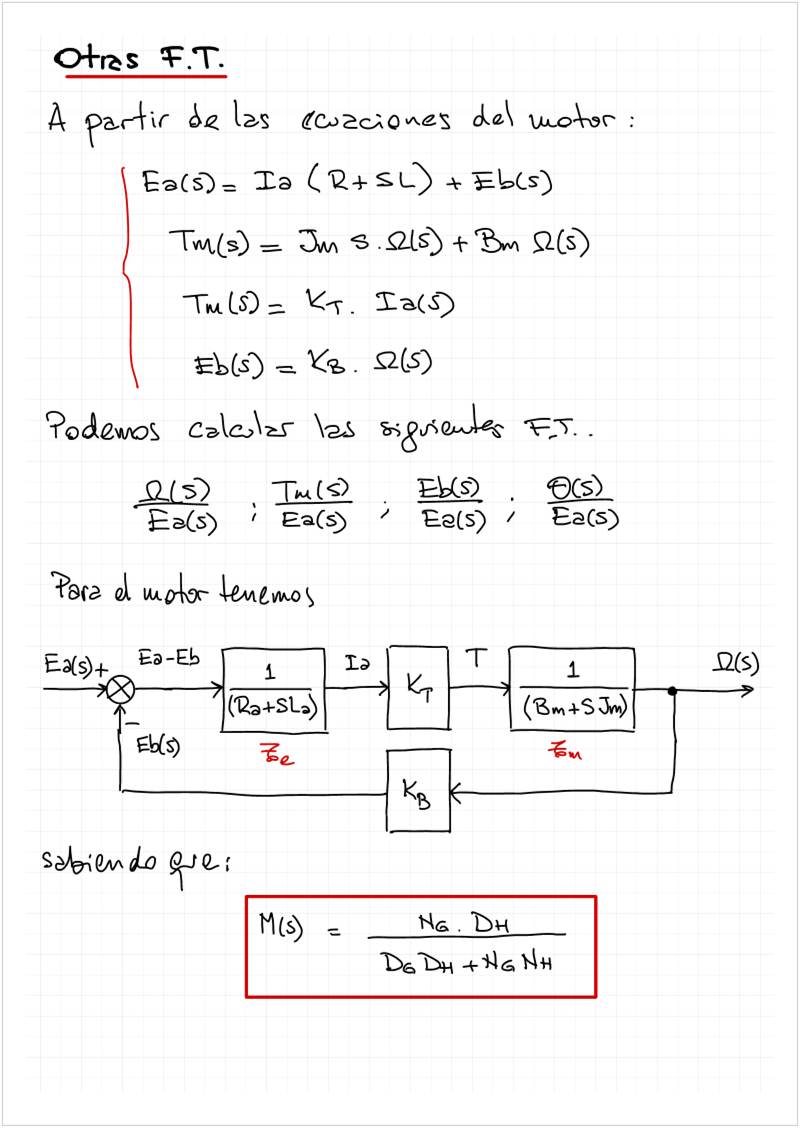 Otras F.T.
A partir de las ecuaciones del motor:
Ea(s) = Ia (R+SL) + Eb(s)
Tm(s) = Jm S.Ω(s) + Bm Ω(s)
Tm(s) = KT. Ia(s)
Eb(s) = KB. Ω(s)
Podemos calcular las siguientes F.T..
Ω(s)/Ea(s) ; Tm(s)/Ea(s) ; Eb(s)/Ea(s) ; Θ(s)/Ea(s)
Para el motor tenemos
Ea(s) + Ea-Eb 1/(Ra+SLa) Ia KT T 1/(Bm+SJm) Ω(s)
− Eb(s) ζe ζm
KB
sabiendo que:
M(s) = NG . DH / DG DH + NG NH